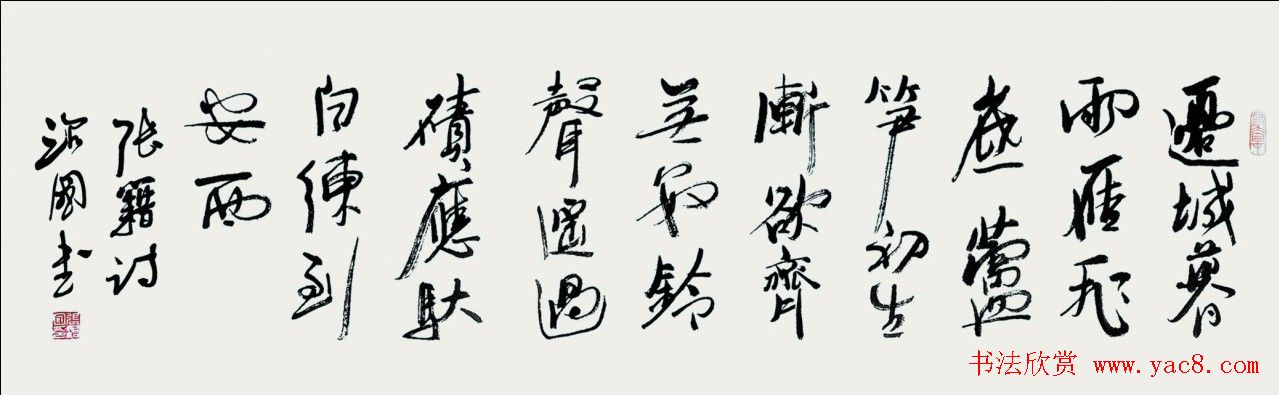 邊城暮
雨雁飛
低蘆
笋初生
漸欲齊
無數鈴
聲遙過
磧應馱
白練到
安西
張籍詩
國書
书法欣赏 www.yac8.com